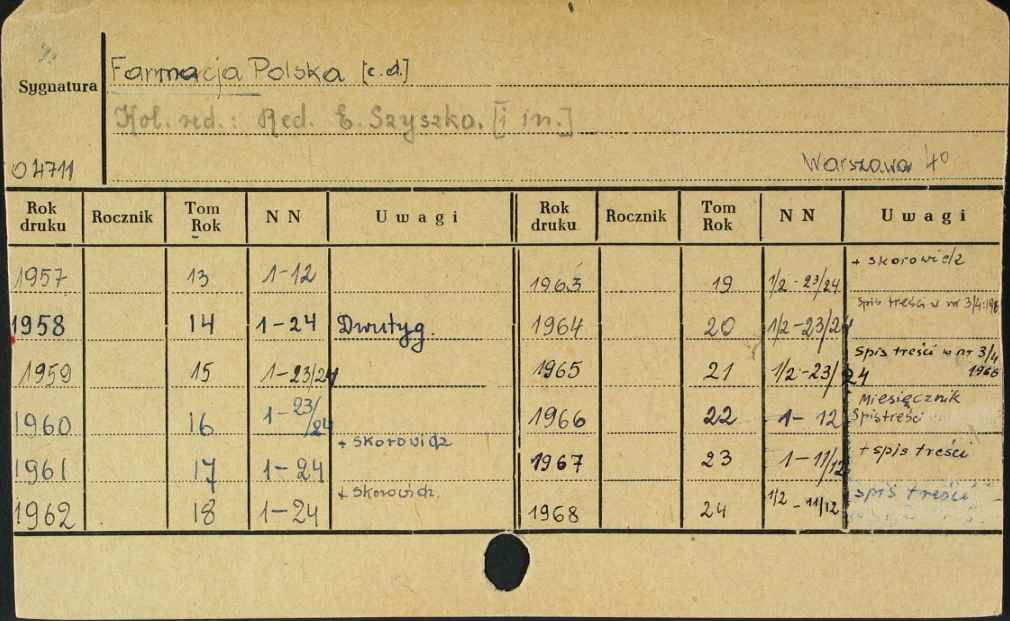 Sygnatura
Farmacja Polska [c.d.]
Kol. red.: Red. E. Szyszko. [i in.]
04711
Warszawa 4°
Rok druku Rocznik Tom Rok NN Uwagi Rok druku Rocznik Tom Rok NN Uwagi
1957 13 1-12 1963 19 1/2-23/24 + skorowidz
1958 14 1-24 Dwutyg. 1964 20 1/2-23/24 Spis treści w nr 3/4:
1959 15 1-23/24 1965 21 1/2-23/24 spis treści w nr 3/4 1966
1960 16 1-23/24 1966 22 1-12 Miesięcznik Spis treści
1961 17 1-24 + skorowidz 1967 23 1-11/12 + spis treści
1962 18 1-24 + skorowidz. 1968 24 1/2-11/12 spis treści